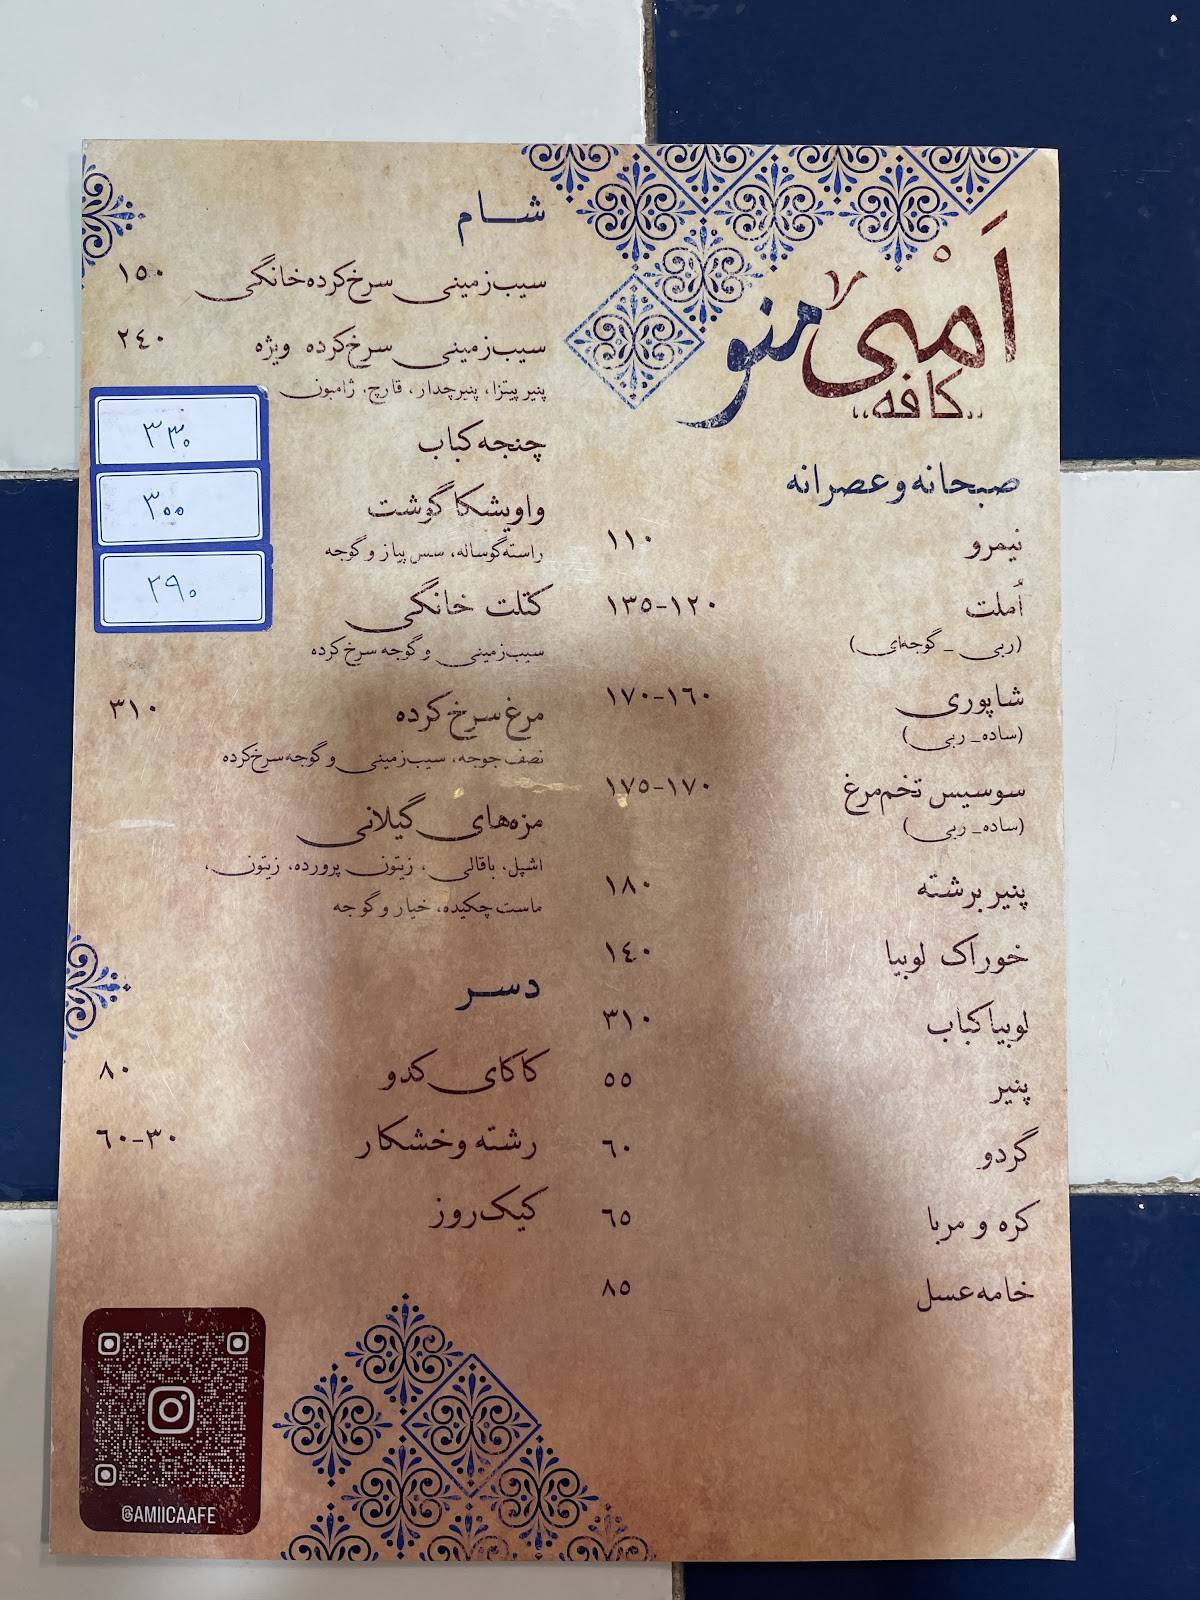 اَمْی منو
„کافه“
صبحانه و عصرانه
نیمرو ۱۱۰
اُملت ۱۲۰-۱۳۵
(ربی _ گوجه‌ای)
شاپوری ۱۶۰-۱۷۰
(ساده_ ربی)
سوسیس تخم‌مرغ ۱۷۰-۱۷۵
(ساده_ ربی)
پنیر برشته ۱۸۰
خوراک لوبیا ۱۴۰
لوبیا کباب ۳۱۰
پنیر ۵۵
گردو ۶۰
کره و مربا ۶۵
خامه عسل ۸۵
شام
سیب‌زمینی سرخ‌کرده خانگی ۱۵۰
سیب‌زمینی سرخ‌کرده ویژه ۲۴۰
پنیر پیتزا، پنیر چدار، قارچ، ژامبون
چنجه کباب ۳۳۰
واویشکا گوشت ۳۰۰
راسته گوساله، سس پیاز و گوجه
کتلت خانگی ۲۹۰
سیب‌زمینی و گوجه سرخ‌کرده
مرغ سرخ کرده ۳۱۰
نصف جوجه، سیب‌زمینی و گوجه سرخ‌کرده
مزه‌های گیلانی
اشپل، باقالی، زیتون پرورده، زیتون،
ماست چکیده، خیار و گوجه
دسر
کاکای کدو ۸۰
رشته و خشکار ۳۰-۶۰
کیک روز
@AMIICAAFE